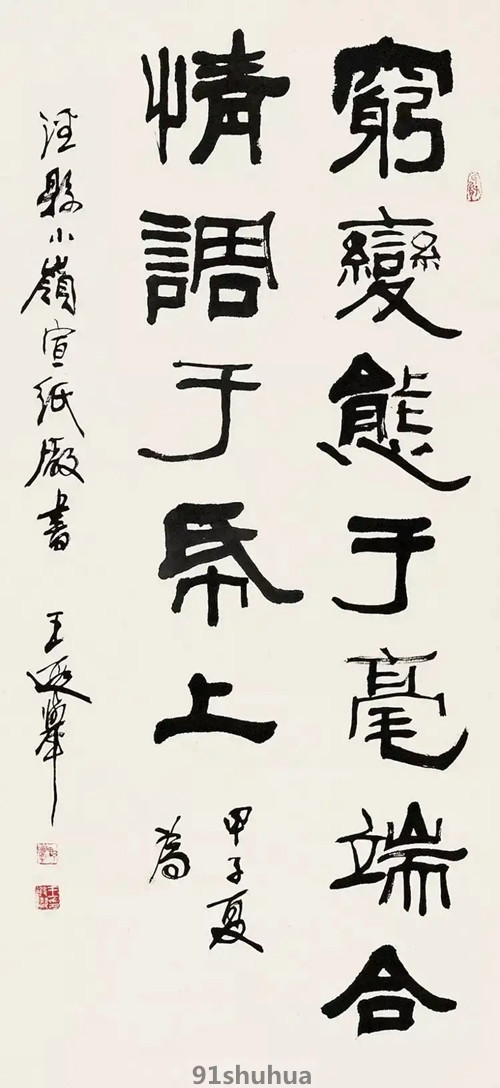 窮變態于毫端合
情調于帋上
甲子夏
為
涇縣小嶺宣紙廠書 王遐舉
91shuhua